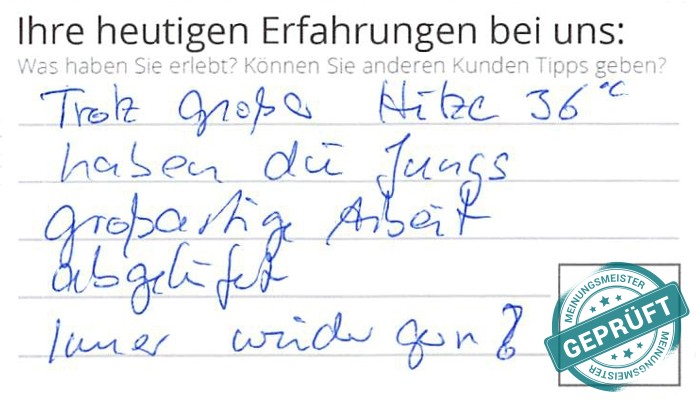 Ihre heutigen Erfahrungen bei uns:
Was haben Sie erlebt? Können Sie anderen Kunden Tipps geben?
Trotz großer Hitze 36°C
haben die Jungs
großartige Arbeit
abgeliefert
Immer wieder gern!
MEINUNGSMEISTER
GEPRÜFT
MEINUNGSMEISTER